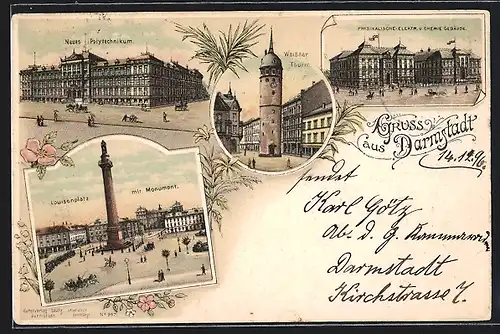 Neues Polytechnikum.
Weisser
Thurm.
PHYSIKALISCHE-ELEKTR. U. CHEMIE GEBÄUDE.
Gruss
aus Darmstadt
14.12.96
sendet
Karl Götz
Darmstadt
Kirchstrasse 7.
Louisenplatz mit Monument.